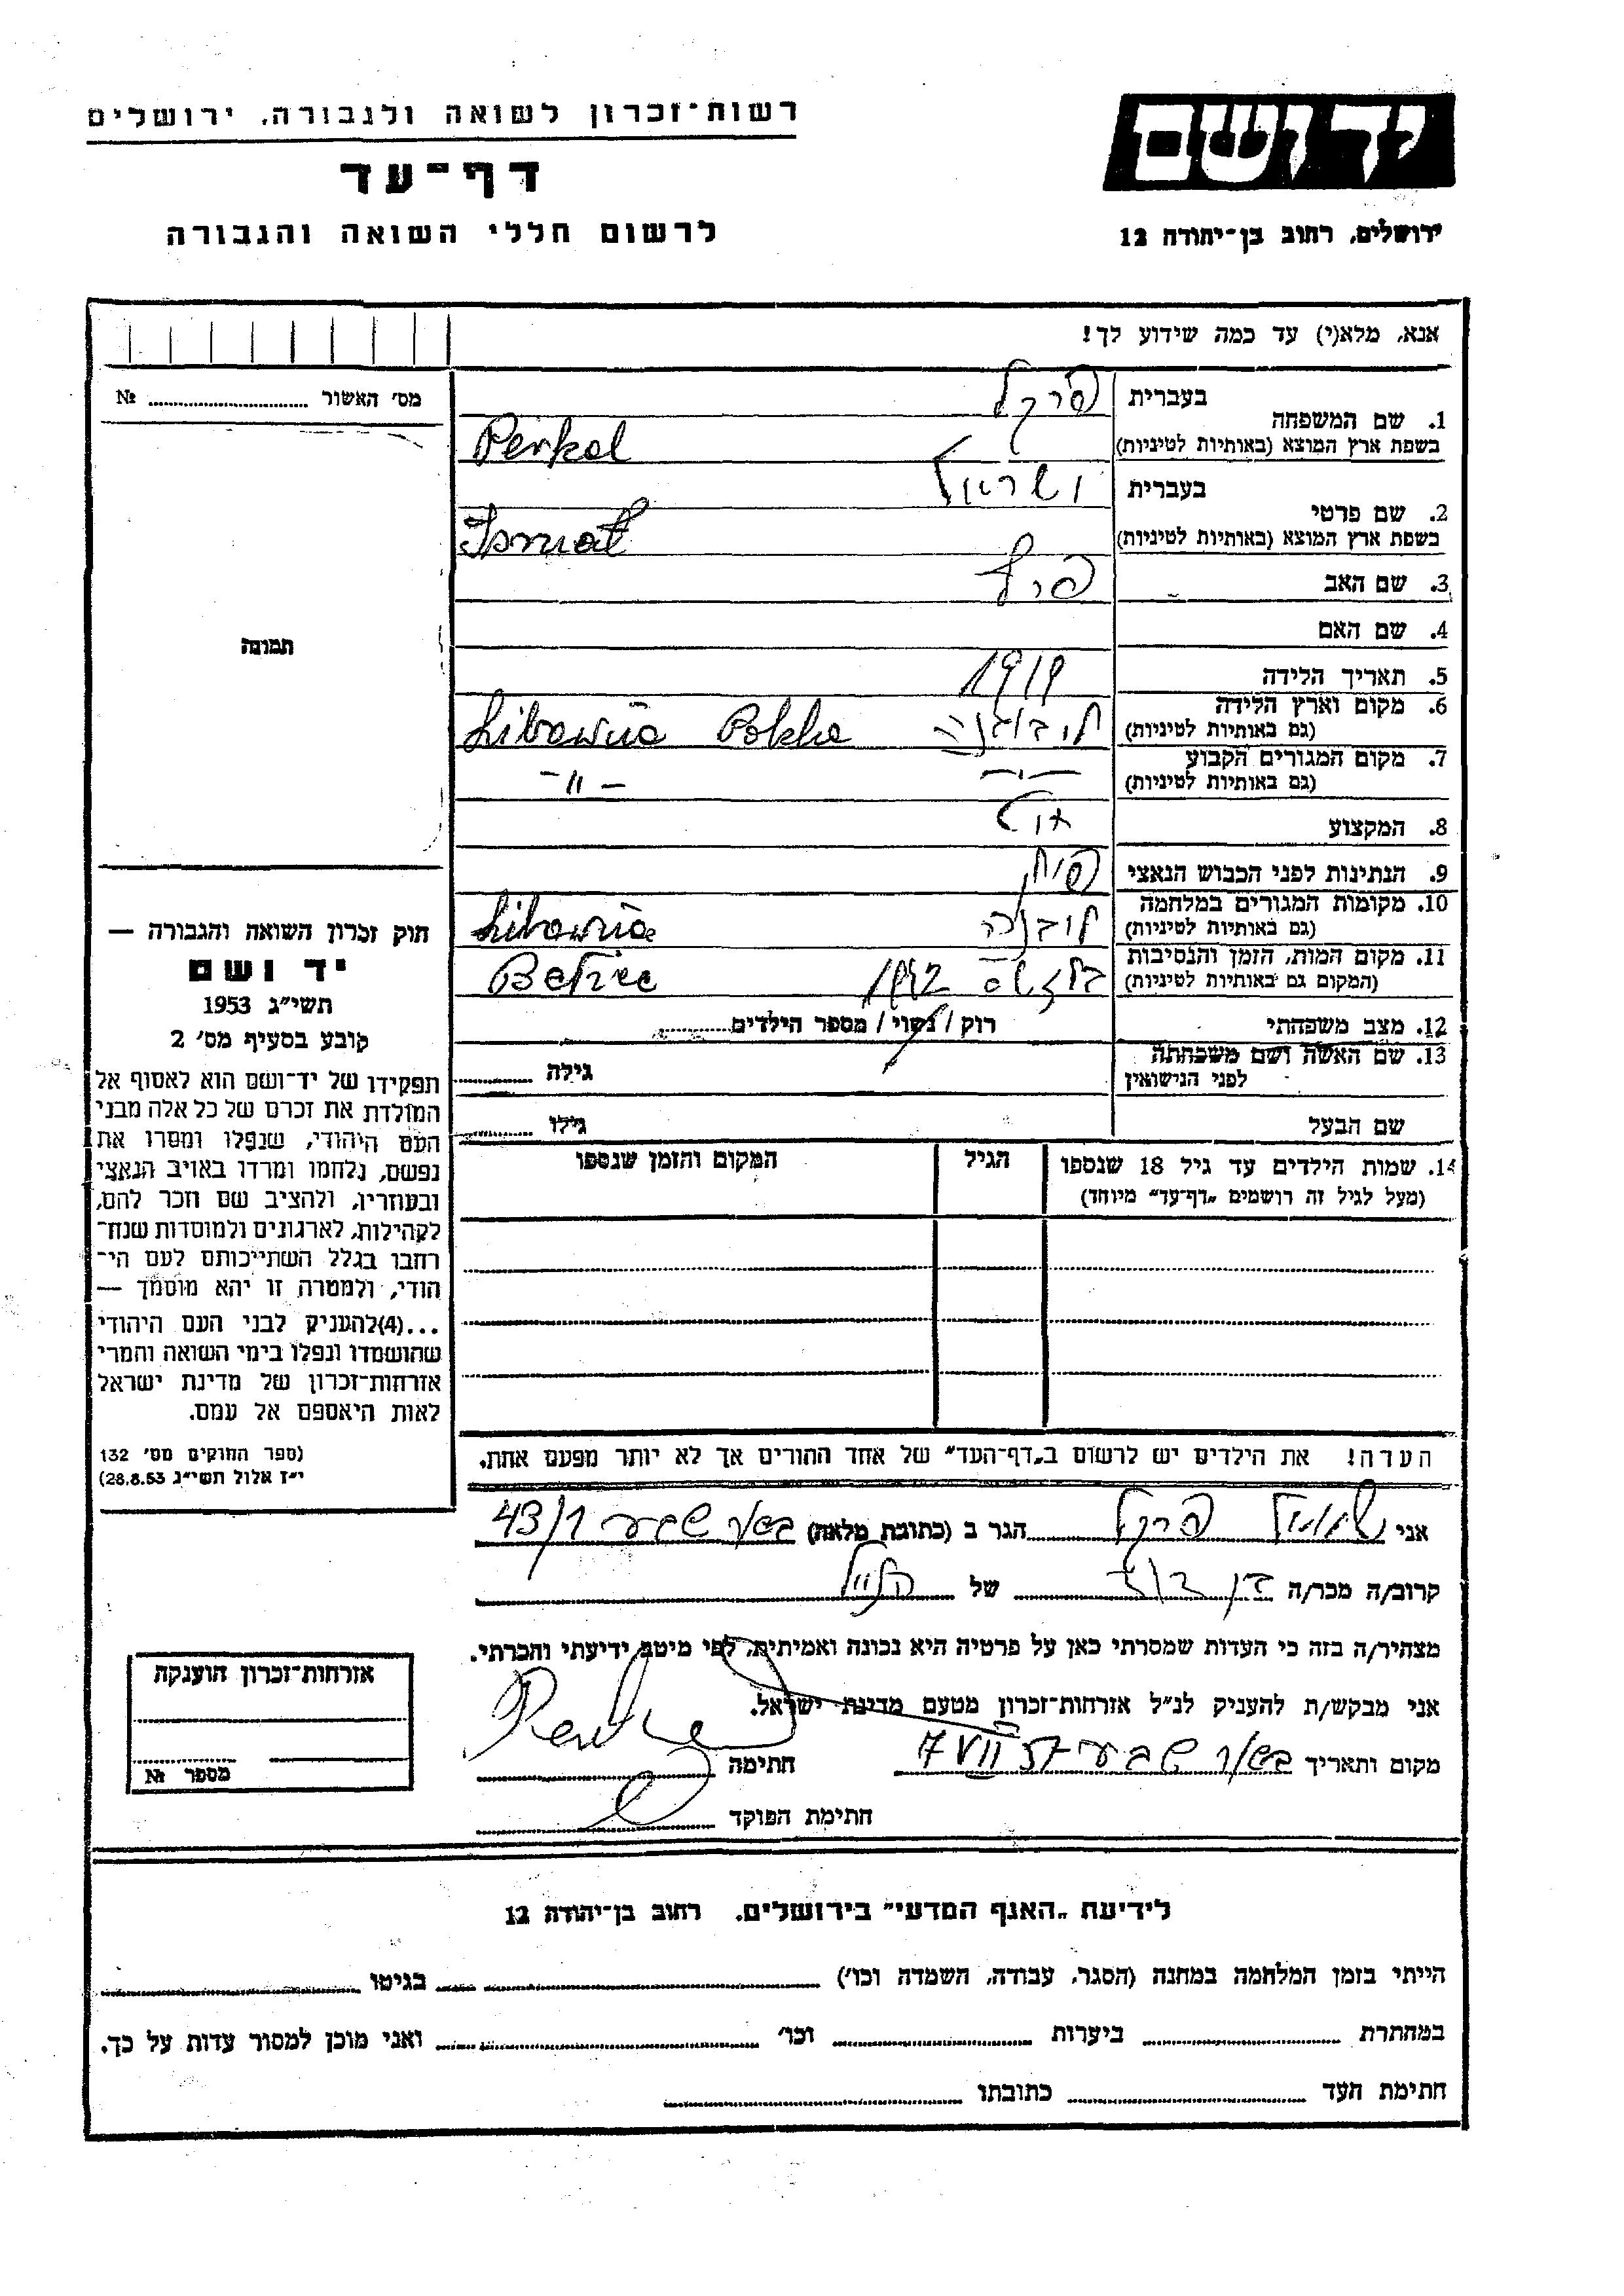 רשות־זכרון לשואה ולגבורה, ירושלים
יד ושם
דף־עד
לרשום חללי השואה והגבורה
ירושלים, רחוב בן־יהודה 12
אנא, מלא(י) עד כמה שידוע לך!
מס׳ האשור № 
1. שם המשפחה בעברית פרקל
בשפת ארץ המוצא (באותיות לטיניות) Perkal
2. שם פרטי בעברית ישראל
בשפת ארץ המוצא (באותיות לטיניות)
3. שם האב
4. שם האם
5. תאריך הלידה 1919
6. מקום וארץ הלידה
(גם באותיות לטיניות) Libawnia Polska
7. מקום המגורים הקבוע
(גם באותיות לטיניות) —״— —״—
8. המקצוע
9. הנתינות לפני הכבוש הנאצי
10. מקומות המגורים במלחמה
(גם באותיות לטיניות) Libawnia
11. מקום המות, הזמן והנסיבות
(המקום גם באותיות לטיניות) 1942
12. מצב משפחתי רוק / נשוי / מספר הילדים
13. שם האשה ושם משפחתה
לפני הנישואין גילה
שם הבעל גילו
14. שמות הילדים עד גיל 18 שנספו הגיל המקום והזמן שנספו
(מעל לגיל זה רושמים „דף־עד״ מיוחד)
תמונה
חוק זכרון השואה והגבורה —
יד ושם
תשי״ג 1953
קובע בסעיף מס׳ 2
תפקידו של יד־ושם הוא לאסוף אל
המולדת את זכרם של כל אלה מבני
העם היהודי, שנפלו ומסרו את
נפשם, נלחמו ומרדו באויב הנאצי
ובעוזריו, ולהציב שם וזכר להם,
לקהילות, לארגונים ולמוסדות שנח־
רחבו בגלל השתייכותם לעם הי־
הודי, ולמטרה זו יהא מוסמך —
...(4)להעניק לבני העם היהודי
שהושמדו ונפלו בימי השואה והמרי
אזרחות־זכרון של מדינת ישראל
לאות היאספם אל עמם.
(ספר החוקים מס׳ 132
י״ז אלול תשי״ג 28.8.53)
הערה! את הילדים יש לרשום ב„דף־העד״ של אחד ההורים אך לא יותר מפעם אחת.
אני שמואל פרקל הגר ב (כתובת מלאה) באר שבע 43/1
קרוב/ה מכר/ה בן דוד של הנ״ל
מצהיר/ה בזה כי העדות שמסרתי כאן על פרטיה היא נכונה ואמיתית, לפי מיטב ידיעתי והכרתי.
אני מבקש/ת להעניק לנ״ל אזרחות־זכרון מטעם מדינת ישראל.
מקום ותאריך באר שבע 7 VII 57 חתימה
חתימת הפוקד
אזרחות־זכרון הוענקה
מספר №
לידיעת „האגף המדעי״ בירושלים, רחוב בן־יהודה 12
הייתי בזמן המלחמה במחנה (הסגר, עבודה, השמדה וכו׳) בגיטו
במחתרת ביערות וכו׳ ואני מוכן למסור עדות על כך.
חתימת העד כתובתו